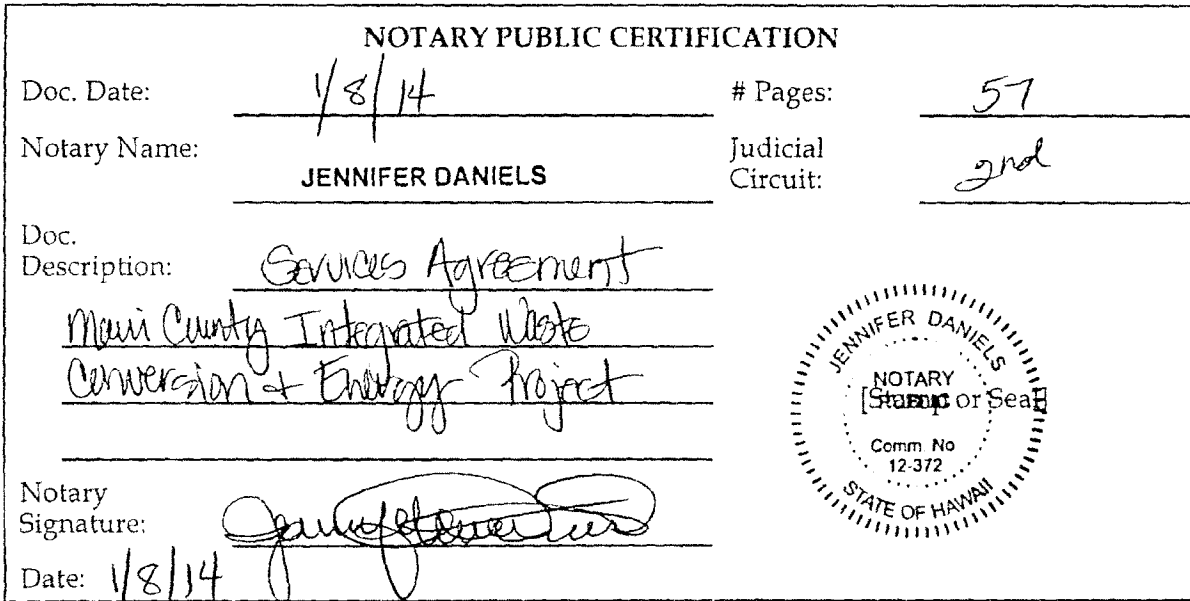 NOTARY PUBLIC CERTIFICATION
Doc. Date: 1/8/14 # Pages: 57
Notary Name: JENNIFER DANIELS Judicial Circuit: 2nd
Doc.
Description: Services Agreement
Maui County Integrated Waste
Conversion + Energy Project
JENNIFER DANIELS
NOTARY
PUBLIC
[Stamp or Seal]
Comm. No
12-372
STATE OF HAWAII
Notary
Signature:
Date: 1/8/14